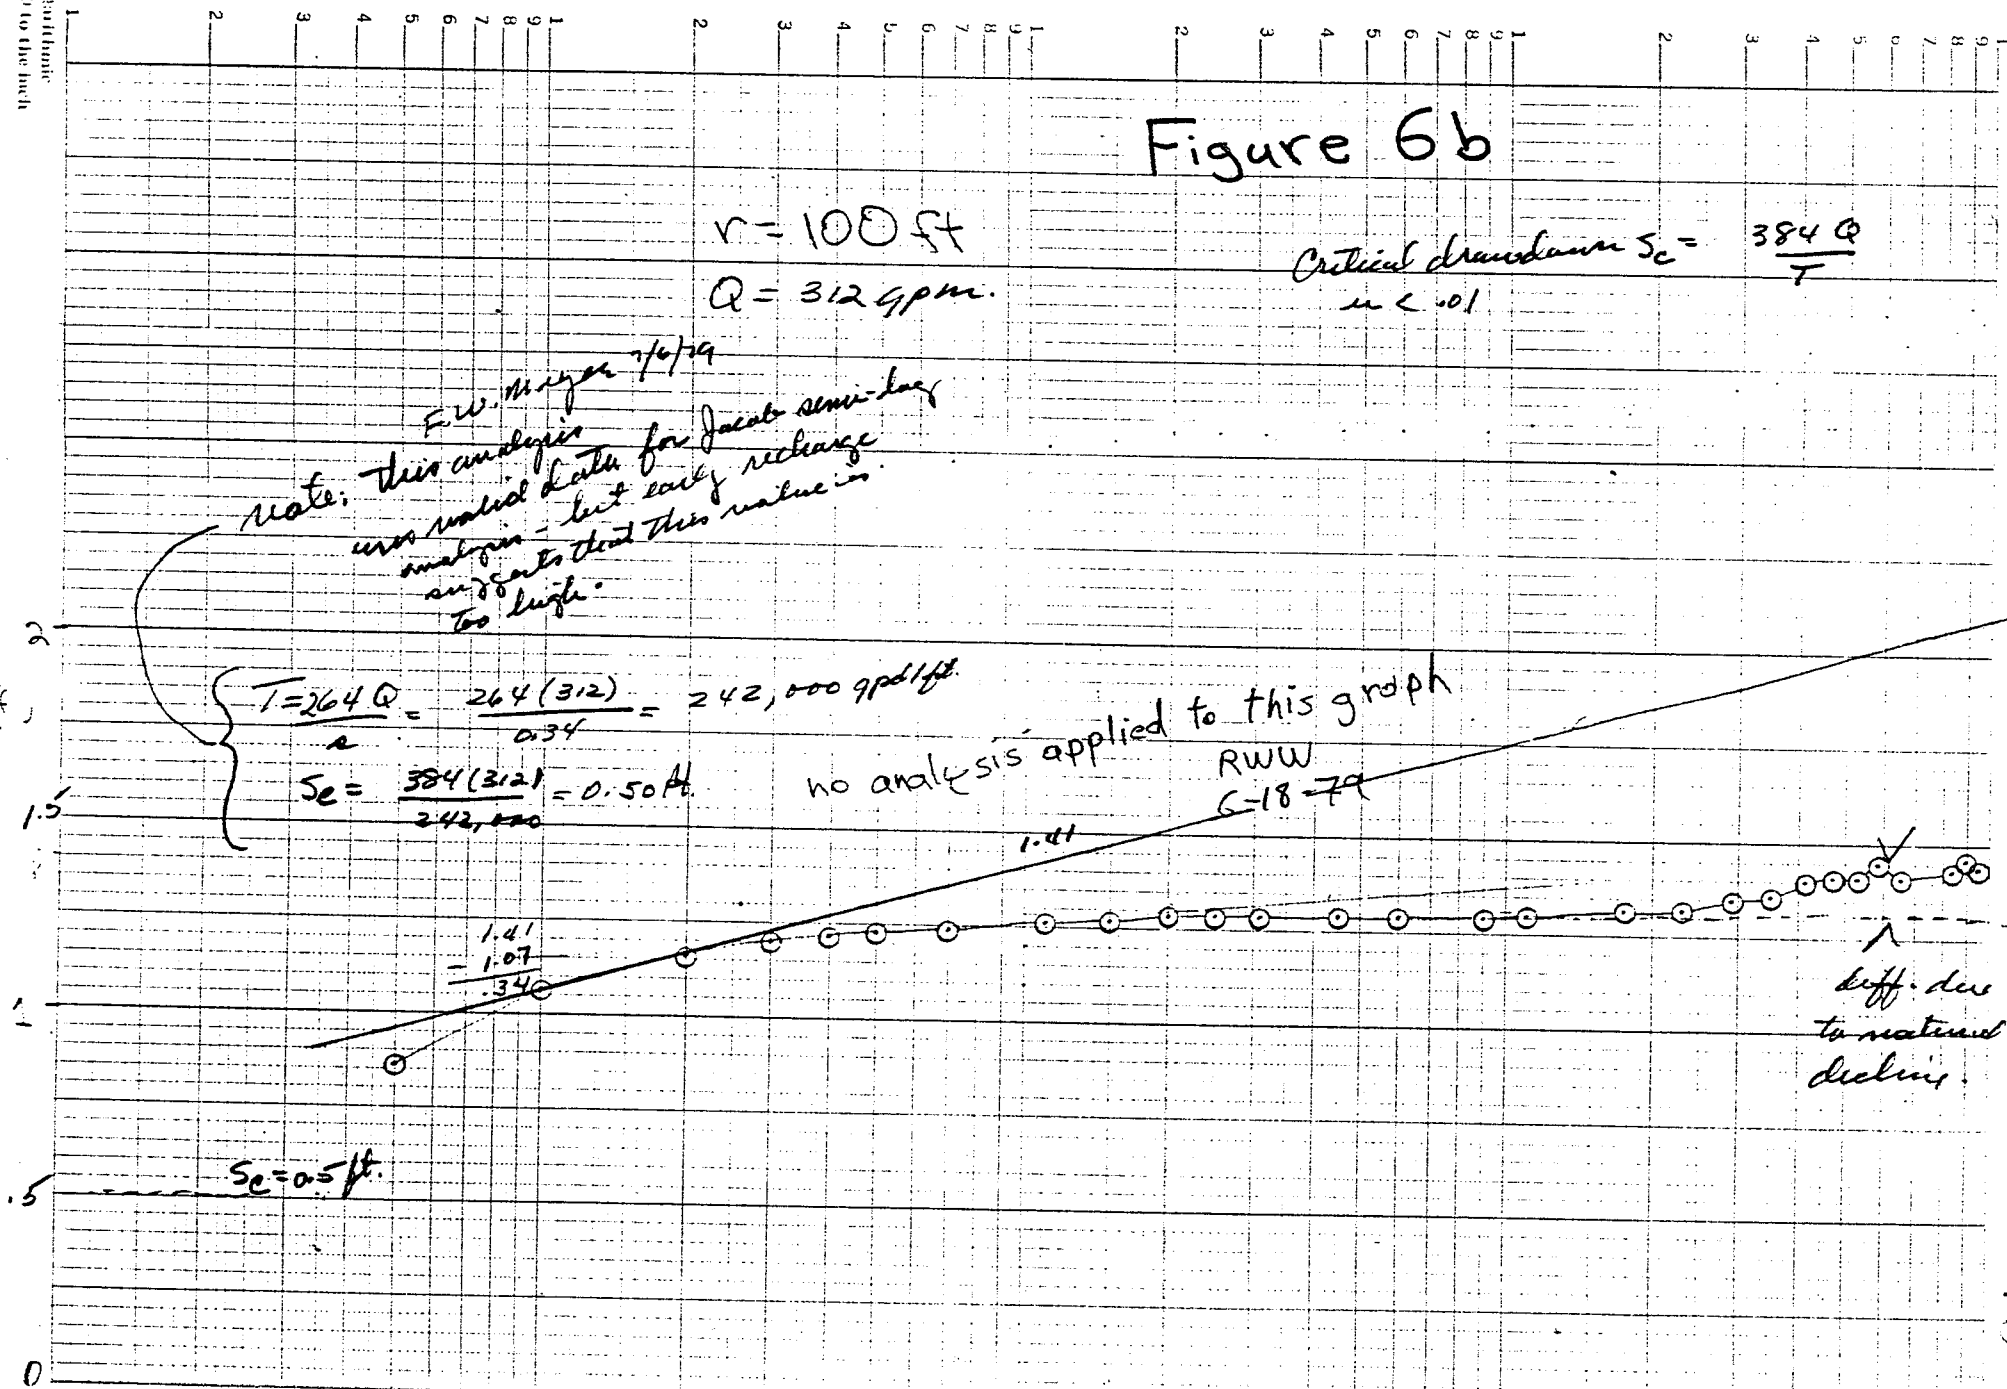 1 2 3 4 5 6 7 8 9 1 2 3 4 5 6 7 8 9 1 2 3 4 5 6 7 8 9 1 2 3 4 5 6 7 8 9 1
to the inch
Figure 6b
r = 100 ft
Q = 312 gpm.
Critical drawdown Sc = 384 Q / T
u < .01
F.W. Meyer 7/6/79
Note: this analysis
uses valid data for Jacob semi-log
analysis - but early recharge
suggests that this value is
too high.
2
T = 264 Q / s = 264 (312) / 0.34 = 242,000 gpd/ft.
Sc = 384 (312) / 242,000 = 0.50 ft.
no analysis applied to this graph
RWW
6-18-79
1.5
1.41
1.41
- 1.07
.34
1
diff. due
to natural
decline.
Sc = 0.5 ft.
.5
0